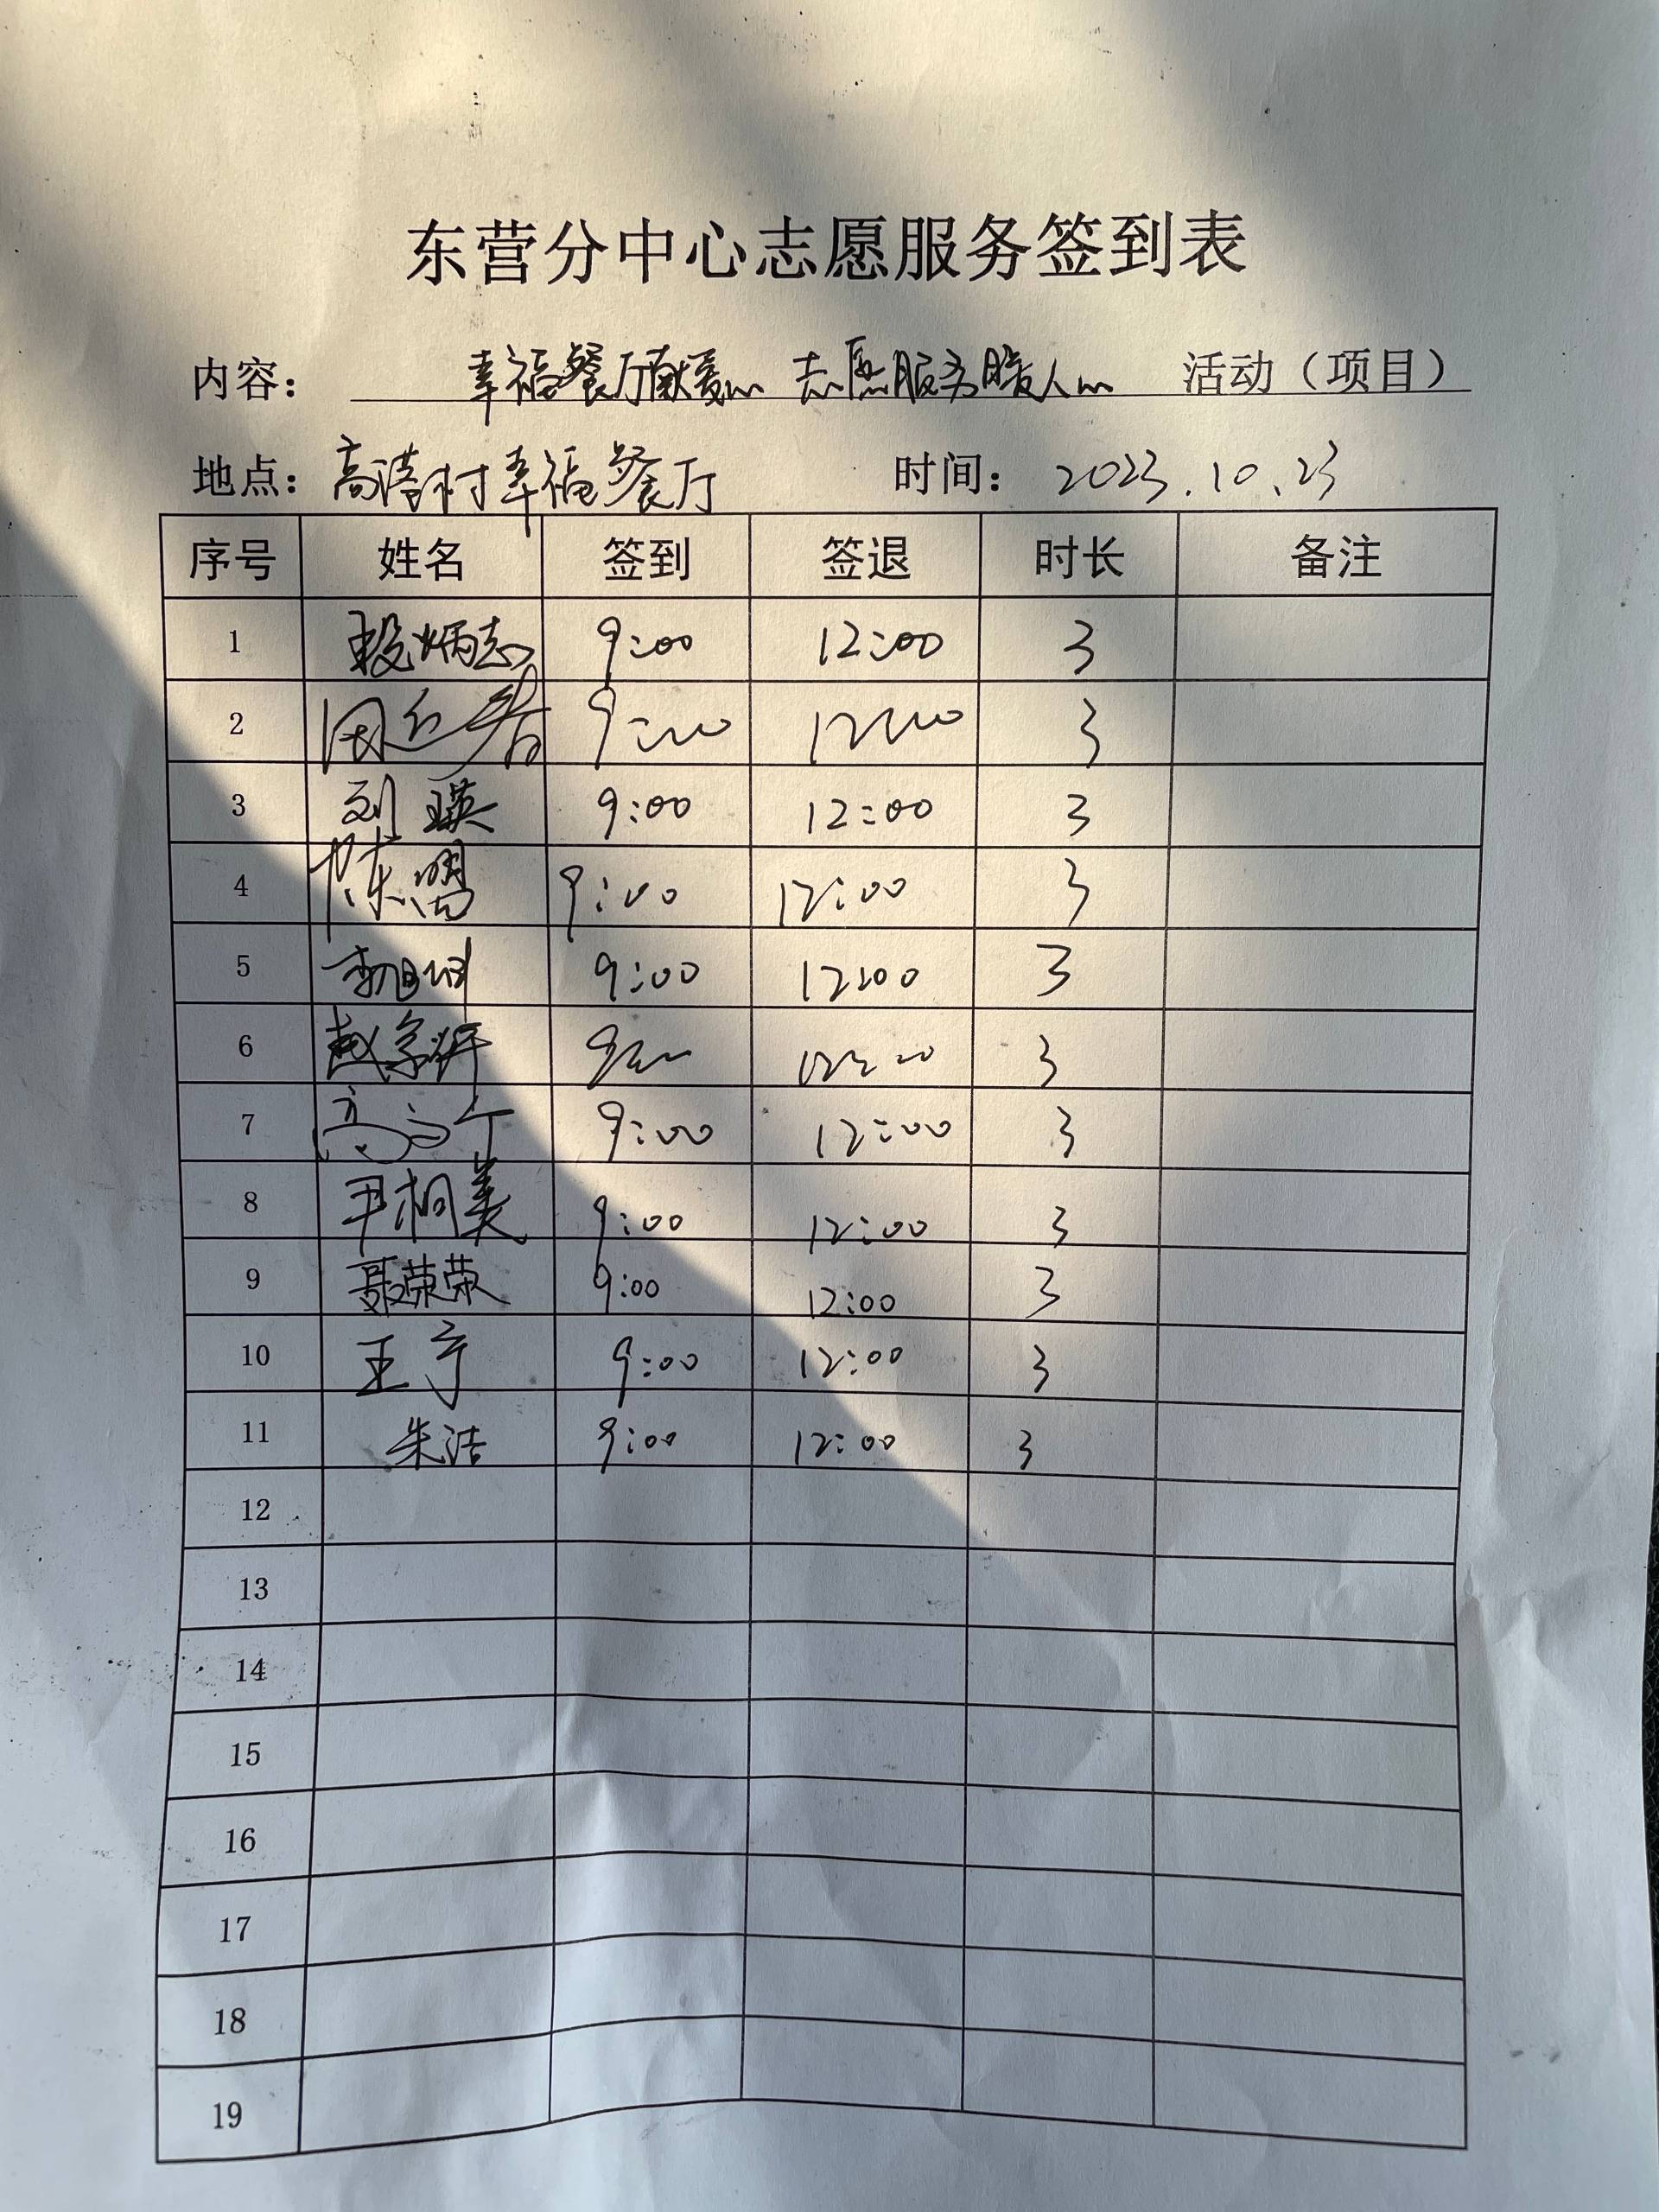 东营分中心志愿服务签到表
内容： 幸福餐厅献爱心 志愿服务暖人心 活动（项目）
地点：高港村幸福餐厅 时间：2023.10.23
序号 姓名 签到 签退 时长 备注
1 炳志 9:00 12:00 3
2 9:00 12:00 3
3 刘瑛 9:00 12:00 3
4 陈明 9:00 12:00 3
5 9:00 12:00 3
6 赵 9:00 12:00 3
7 高 9:00 12:00 3
8 尹桐美 9:00 12:00 3
9 聂荣荣 9:00 12:00 3
10 王宁 9:00 12:00 3
11 朱洁 9:00 12:00 3
12
13
14
15
16
17
18
19